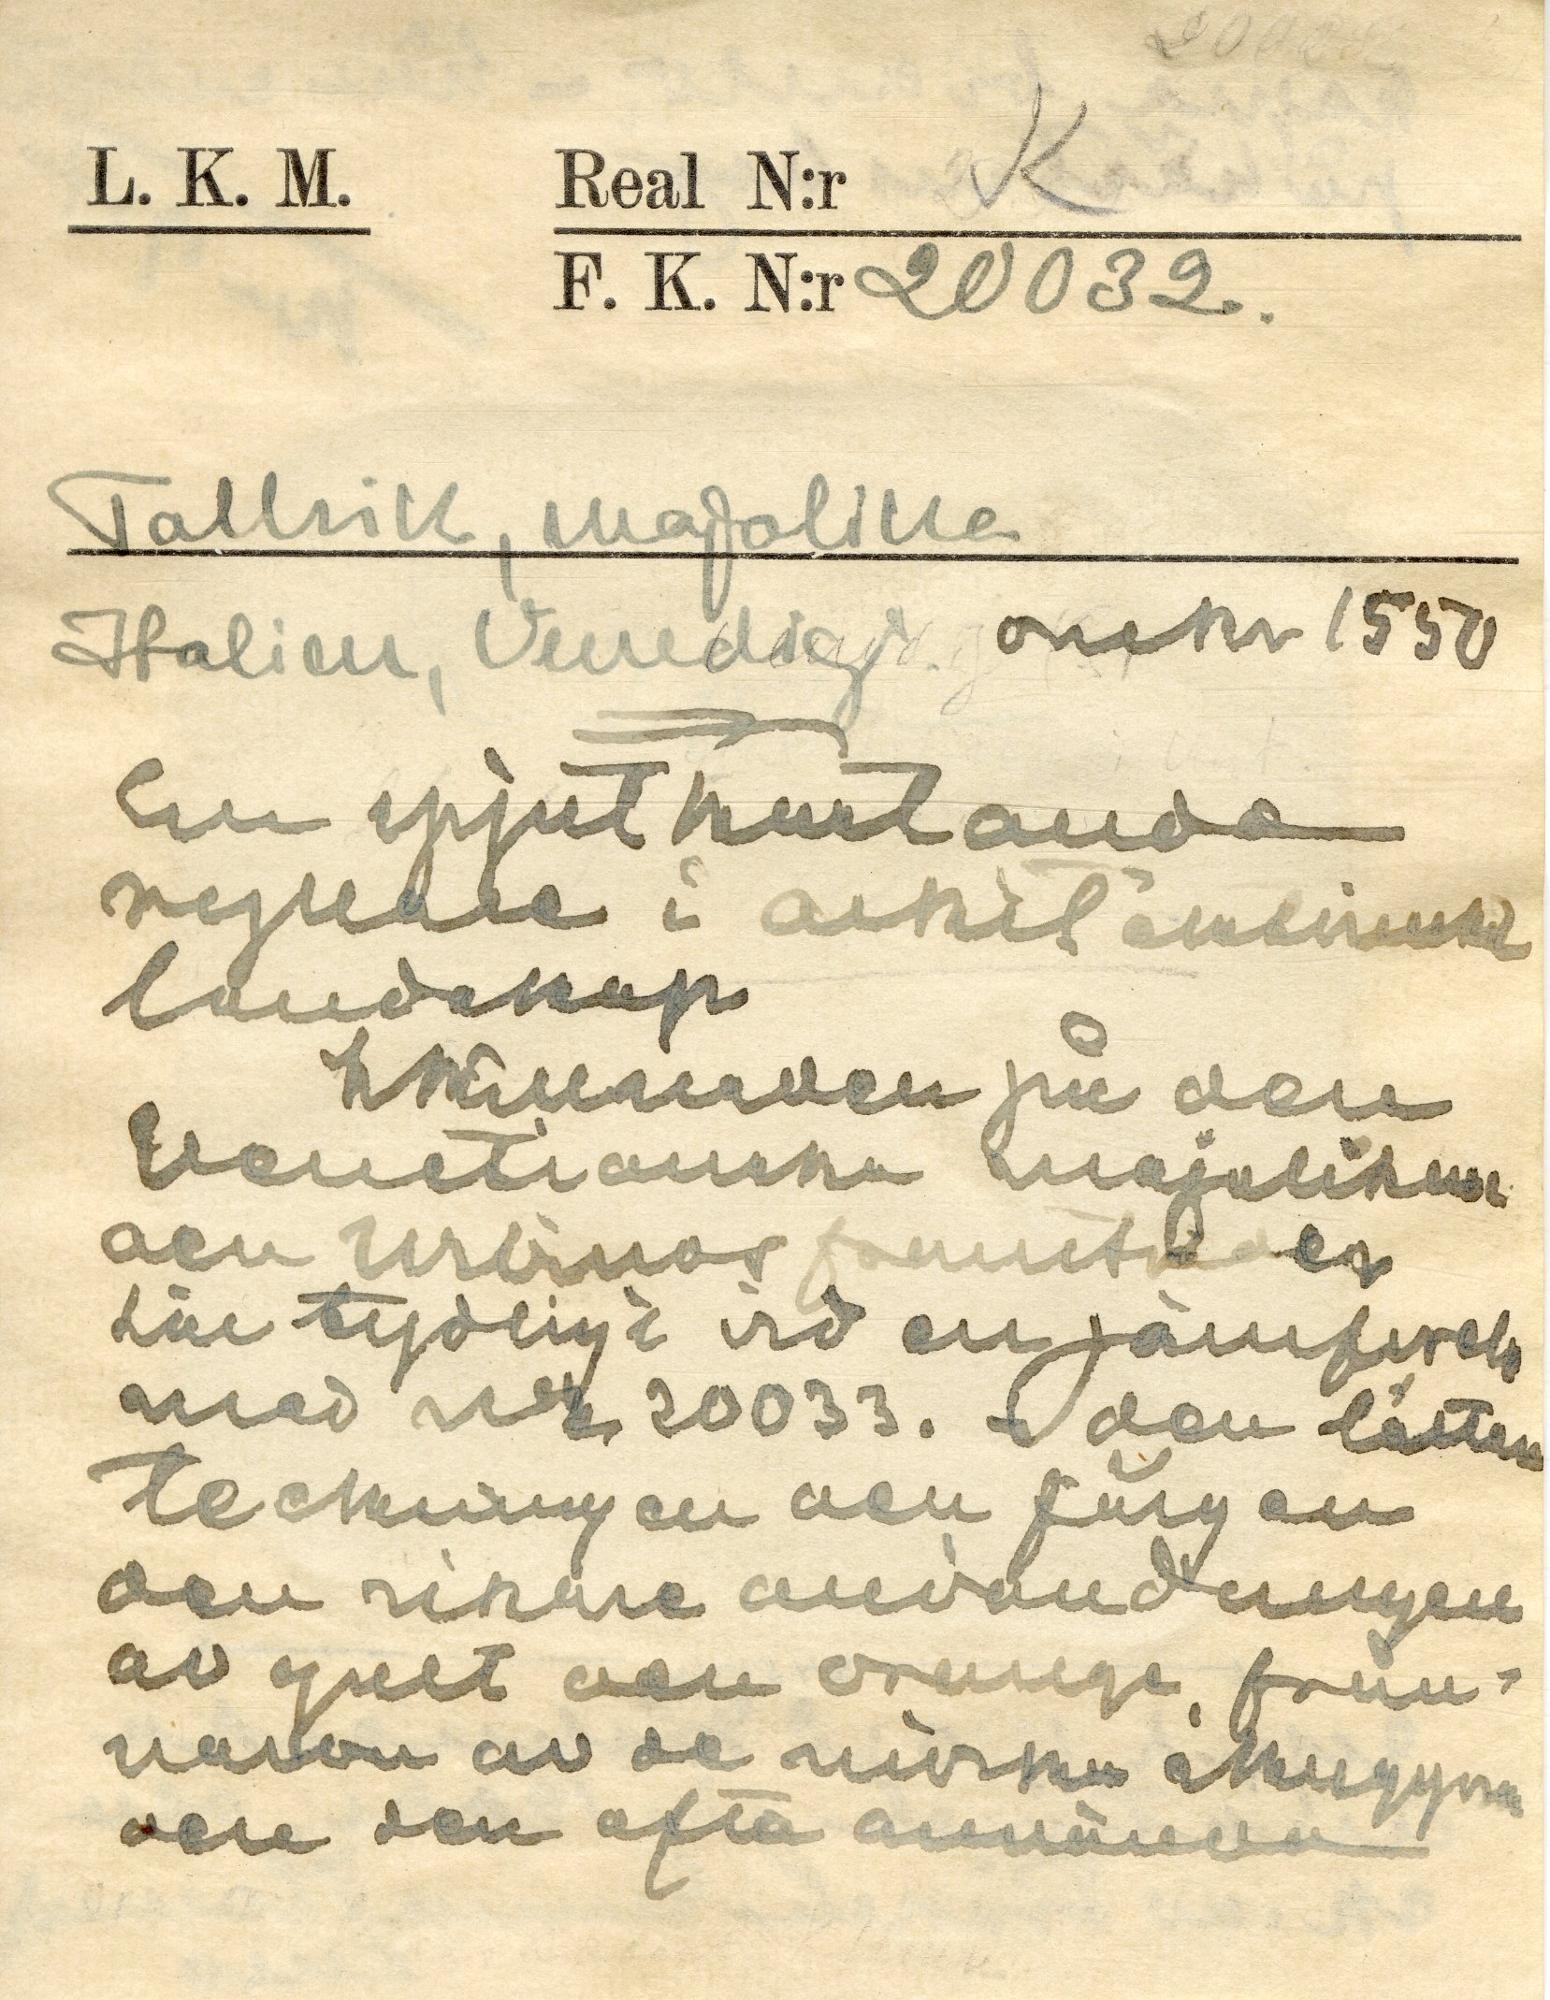 L. K. M.
Real N:r K
F. K. N:r 20032.
Tallrik, majolika
Italien, Venedig omkr 1550
En spjutkastande
ryttare i
landskap
Skillnaden på den
Venetianska majolikan
och Urbinos framträder
här tydligt vid en jämförelse
med nr 20033. I den lätta
teckningen och färgen
den rikare användningen
av gult och orange, från-
varon av de mörka skuggorna
och den ofta använda